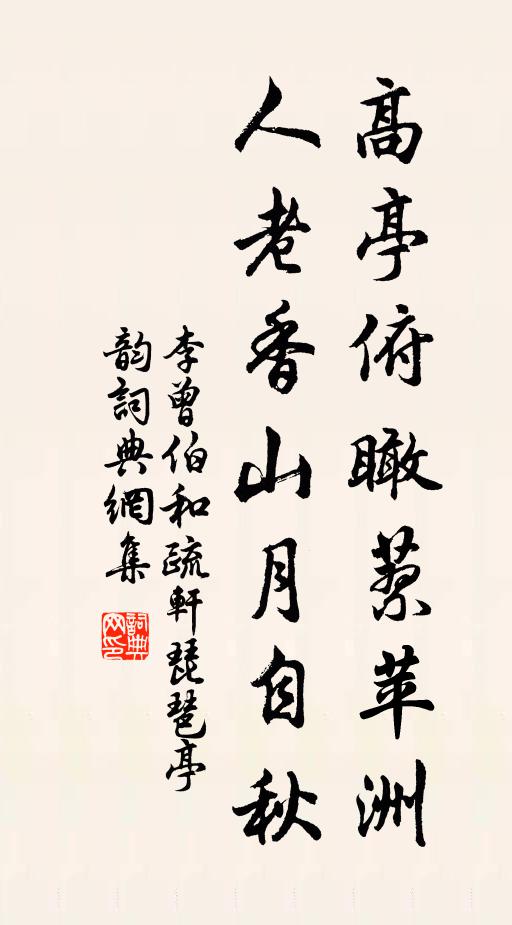 高亭俯瞰蓼苹洲
人老香山月自秋
李曾伯和疏軒琵琶亭
韵詞典網集
詞典网印